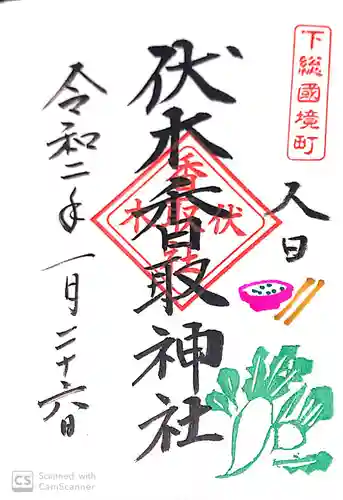 下総國境町
人日
伏木香取神社
伏木香取神社
令和二年
一月二十六日
CS Scanned with
CamScanner